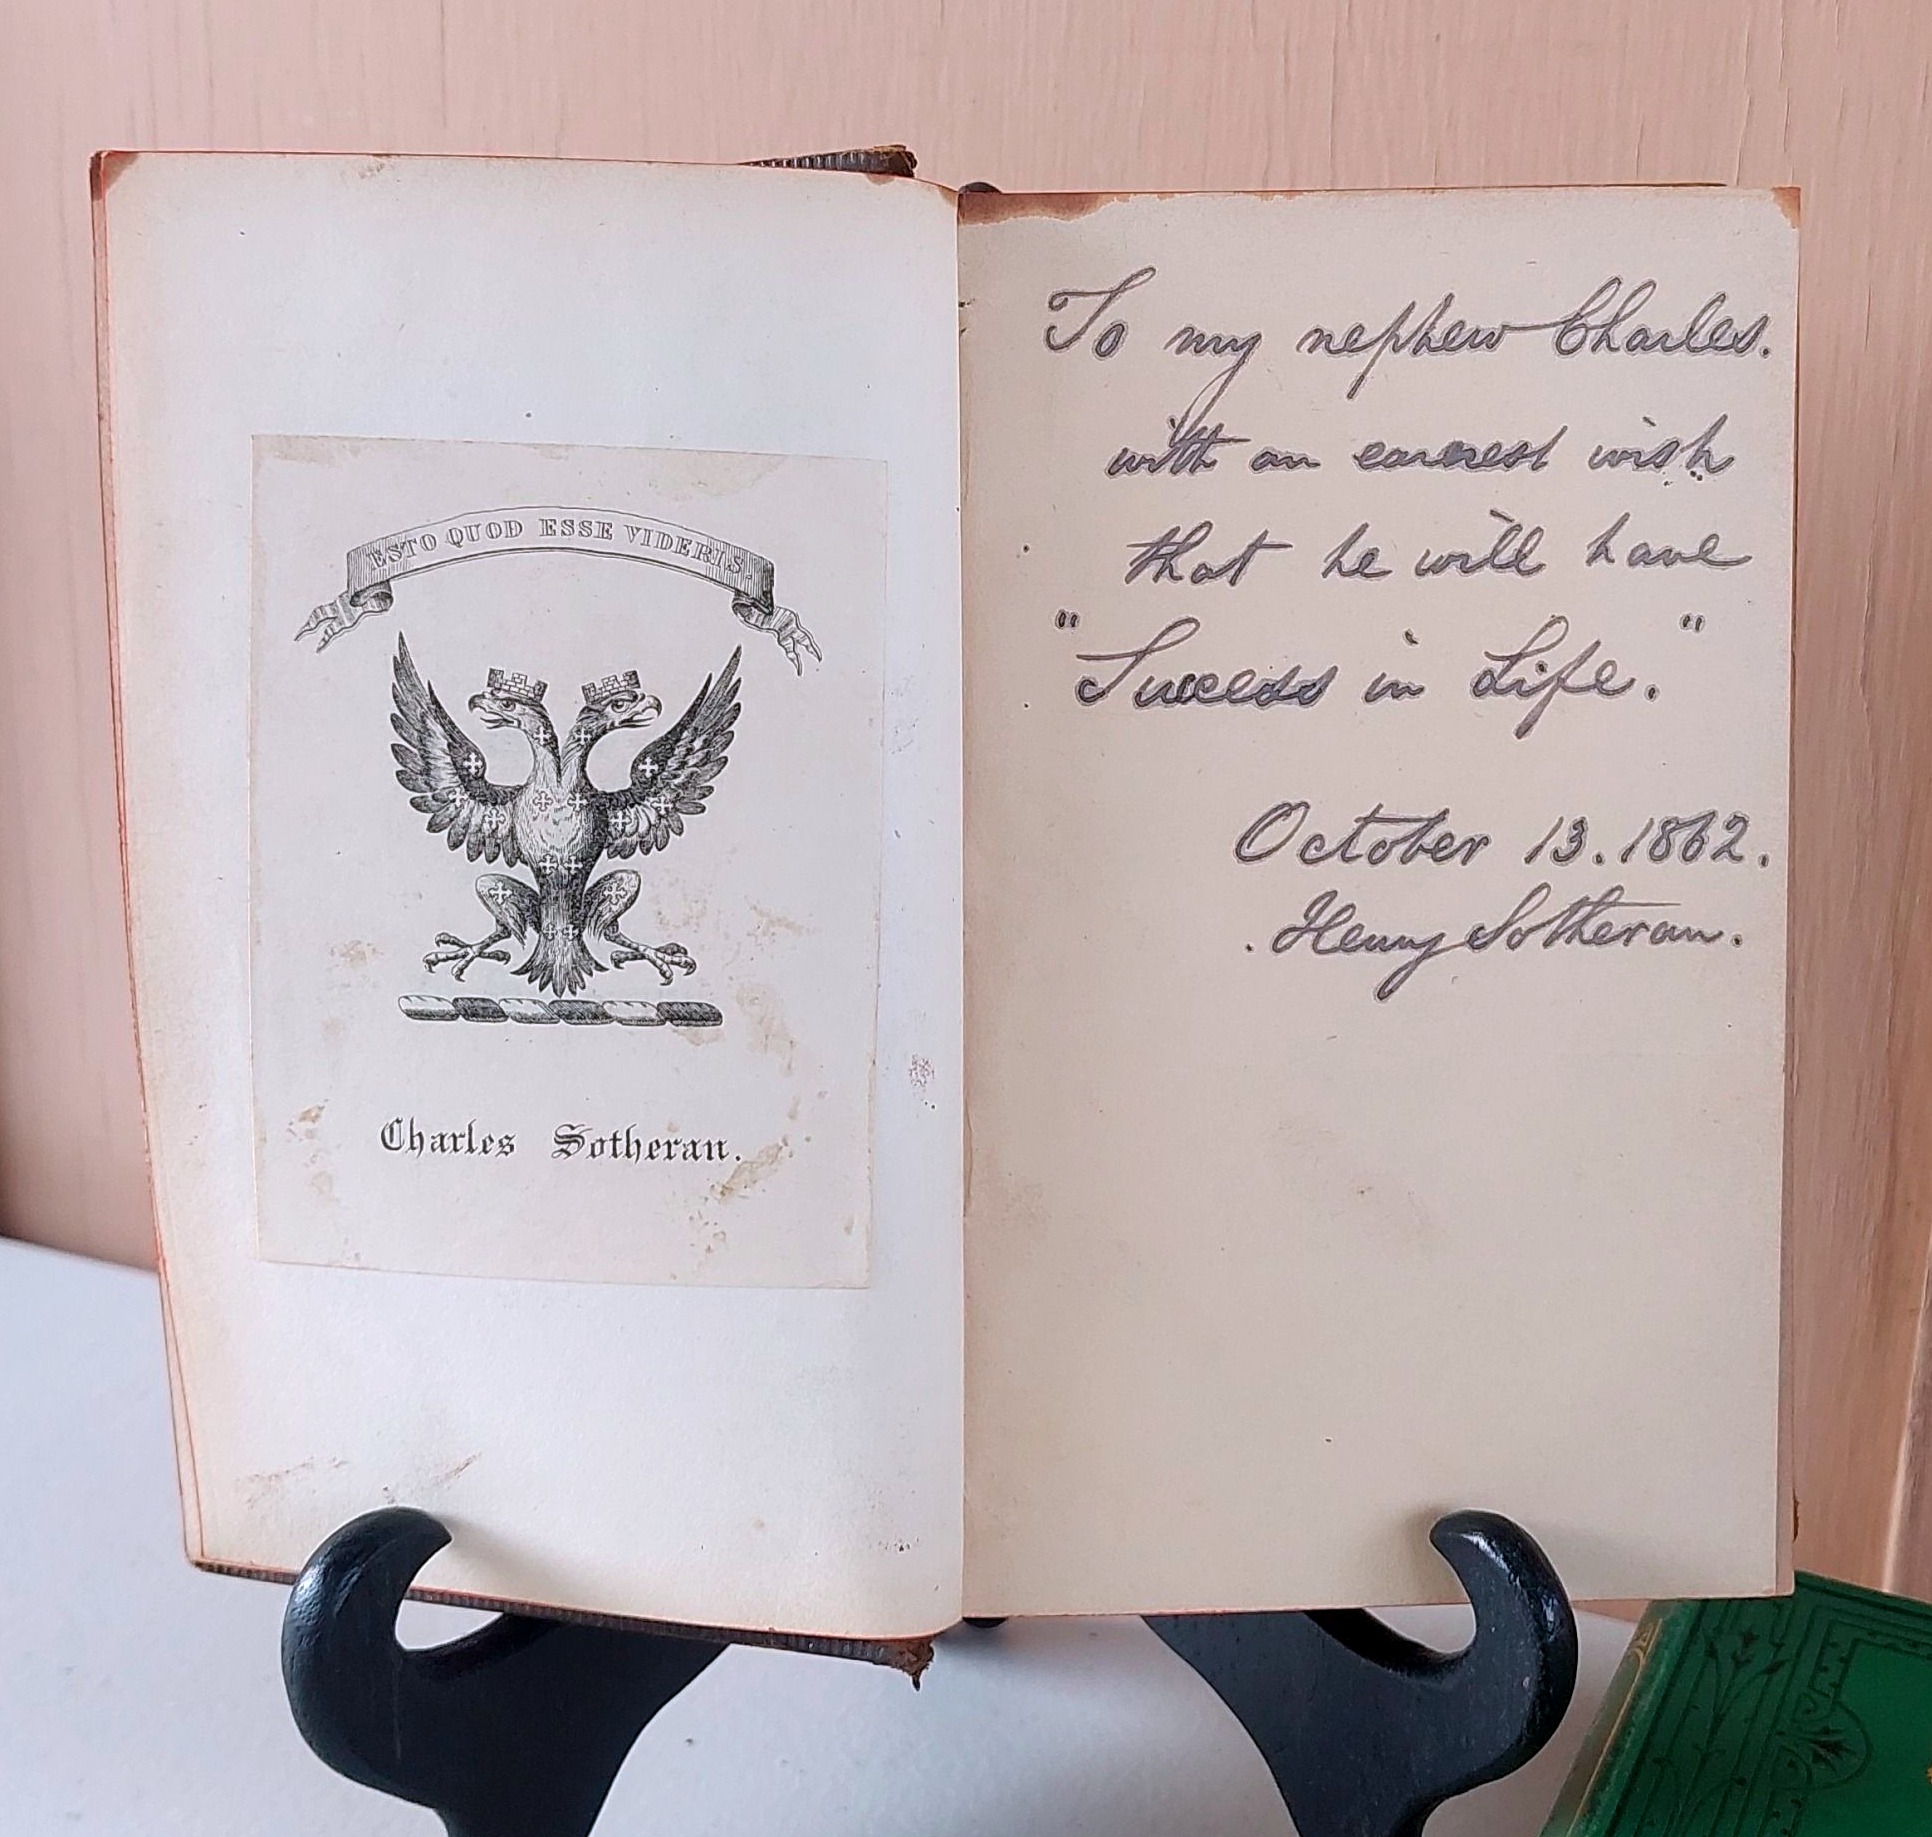 ESTO QUOD ESSE VIDERIS.
Charles Sotheran.
To my nephew Charles.
with an earnest wish
that he will have
"Success in Life."
October 13. 1862.
Henry Sotheran.